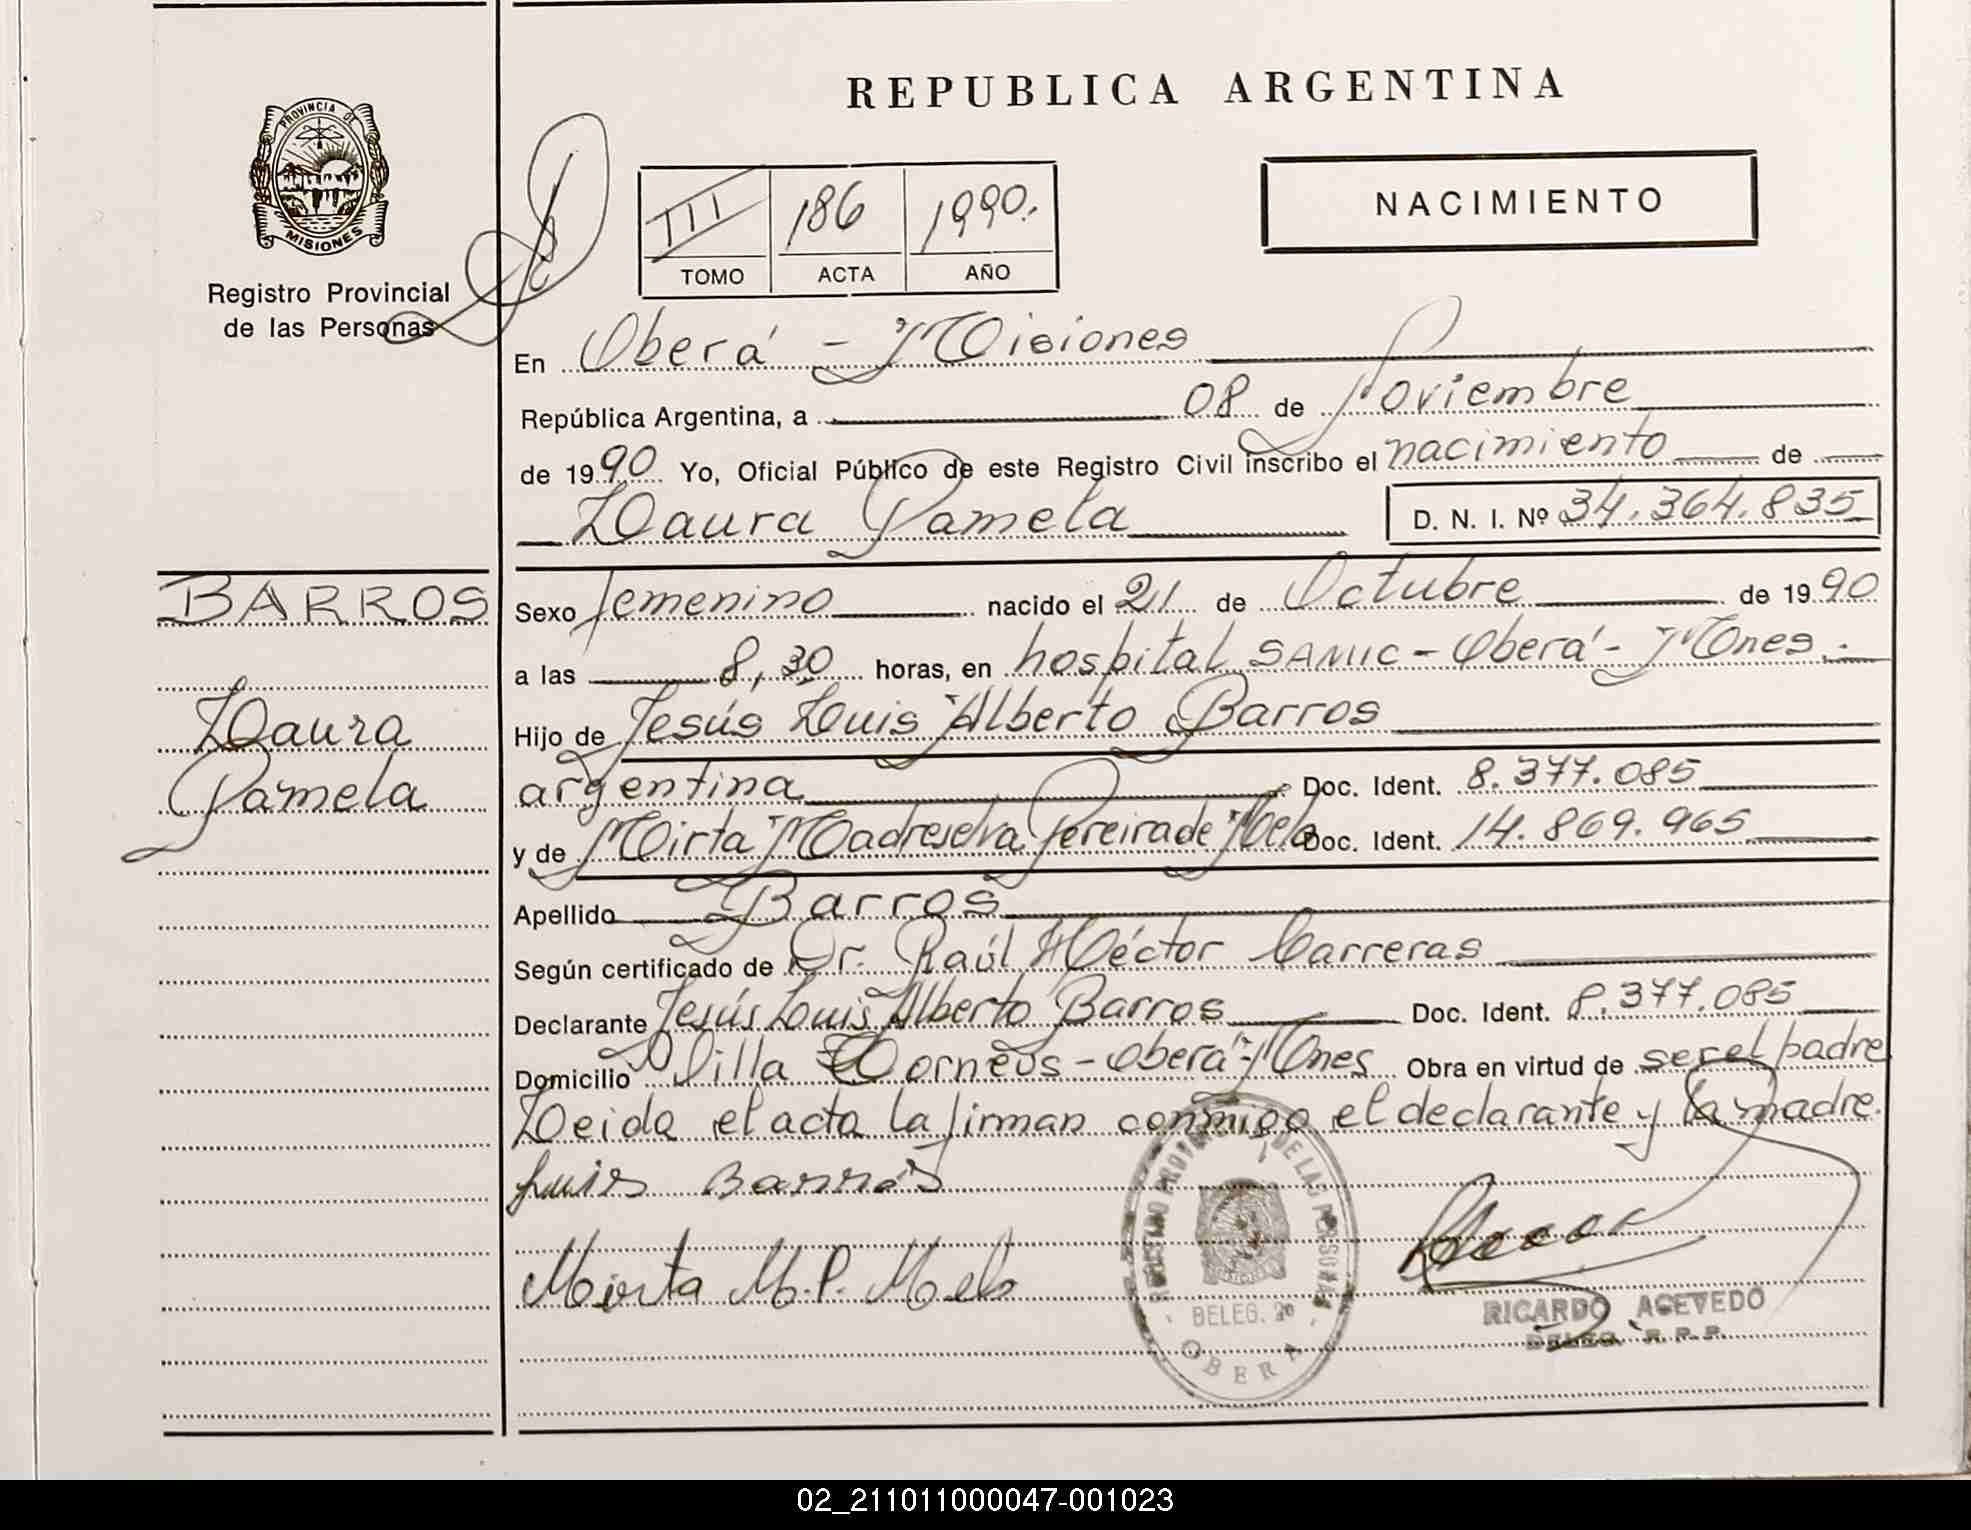 REPUBLICA ARGENTINA
PROVINCIA DE
MISIONES
Registro Provincial
de las Personas
III 186 1990.
TOMO ACTA AÑO
NACIMIENTO
En Oberá - Misiones
República Argentina, a 08 de Noviembre
de 1990 Yo, Oficial Público de este Registro Civil inscribo el nacimiento de
Laura Pamela D. N. I. Nº 34.364.835
BARROS
Laura
Pamela
Sexo femenino nacido el 21 de Octubre de 1990
a las 8,30 horas, en hospital SAMIC - Oberá - Mnes.-
Hijo de Jesús Luis Alberto Barros
argentina Doc. Ident. 8.377.085
y de Mirta Madreselva Pereira de Melo Doc. Ident. 14.869.965
Apellido Barros
Según certificado de Dr. Raúl Héctor Carreras
Declarante Jesús Luis Alberto Barros Doc. Ident. 8.377.085
Domicilio Villa Torneus - Oberá - Mnes Obra en virtud de ser el padre
Leida el acta la firman conmigo el declarante y la madre.
Luis Barros
Mirta M. P. Melo
REGISTRO PROVINCIAL DE LAS PERSONAS
DELEG. 20
OBERA
RICARDO ACEVEDO
DELEG. R.P.P.
02_211011000047-001023